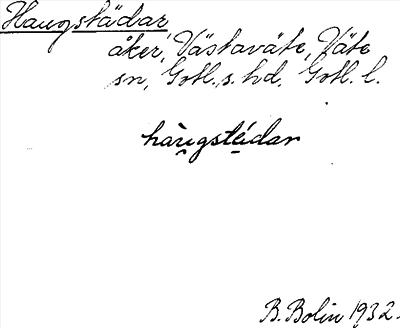 Haugstädar
åker, Västaväte, Väte
sn, Gotl. s. hd, Gotl. l.
hàu̯gsté̱dar
B. Bolin 1932.